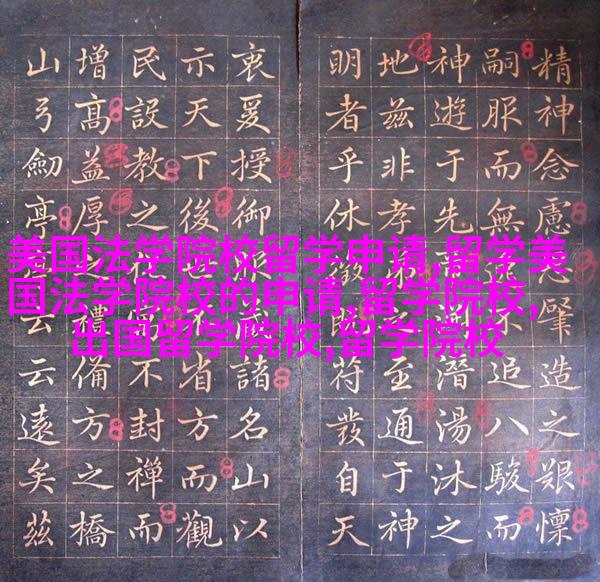 精神念慮肇造之艱懍
嗣服而無追八駿而
神遊于先潛湯沐之
地兹非孝弟之至通于神
明者乎休徵既符發自天
衷爰授御諸名山以
示天下後省方而觀
民設教之不封禪而
增高益厚禮偹方之橋
山弓劒亭云云遠矣兹
美国法学院校留学申请,留学美
国法学院校的申请,留学院校,
出国留学院校,留学院校